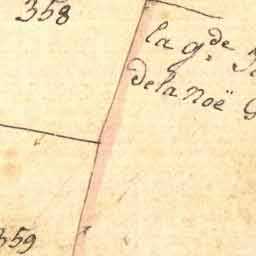 358
la g.de
de la noë
359